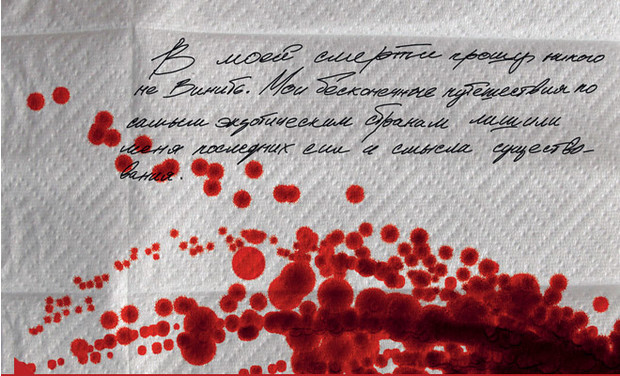 В моей смерти прошу никого
не винить. Мои бесконечные путешествия по
самым экзотическим странам лишили
меня последних сил и смысла существо-
вания.